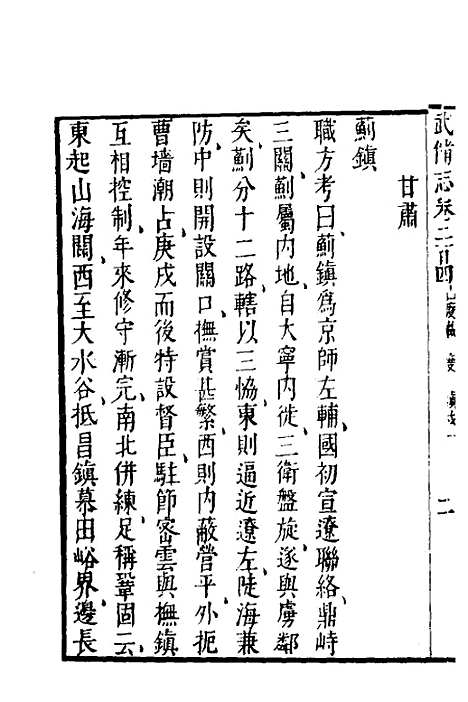 武備志卷二百四
二
甘肅
薊鎮
職方考曰薊鎮爲京師左輔國初宣遼聯絡鼎峙
三關薊屬内地自大寧内徙三衛盤旋遂與虜鄰
矣薊分十二路轄以三協東則逼近遼左陡海兼
防中則開設關口撫賞甚繁西則内蔽營平外扼
曹墻潮占庚戌而後特設督臣駐節密雲與撫鎮
互相控制年來修守漸完南北併練足稱鞏固云
東起山海關西至大水谷抵昌鎮慕田峪界邊長